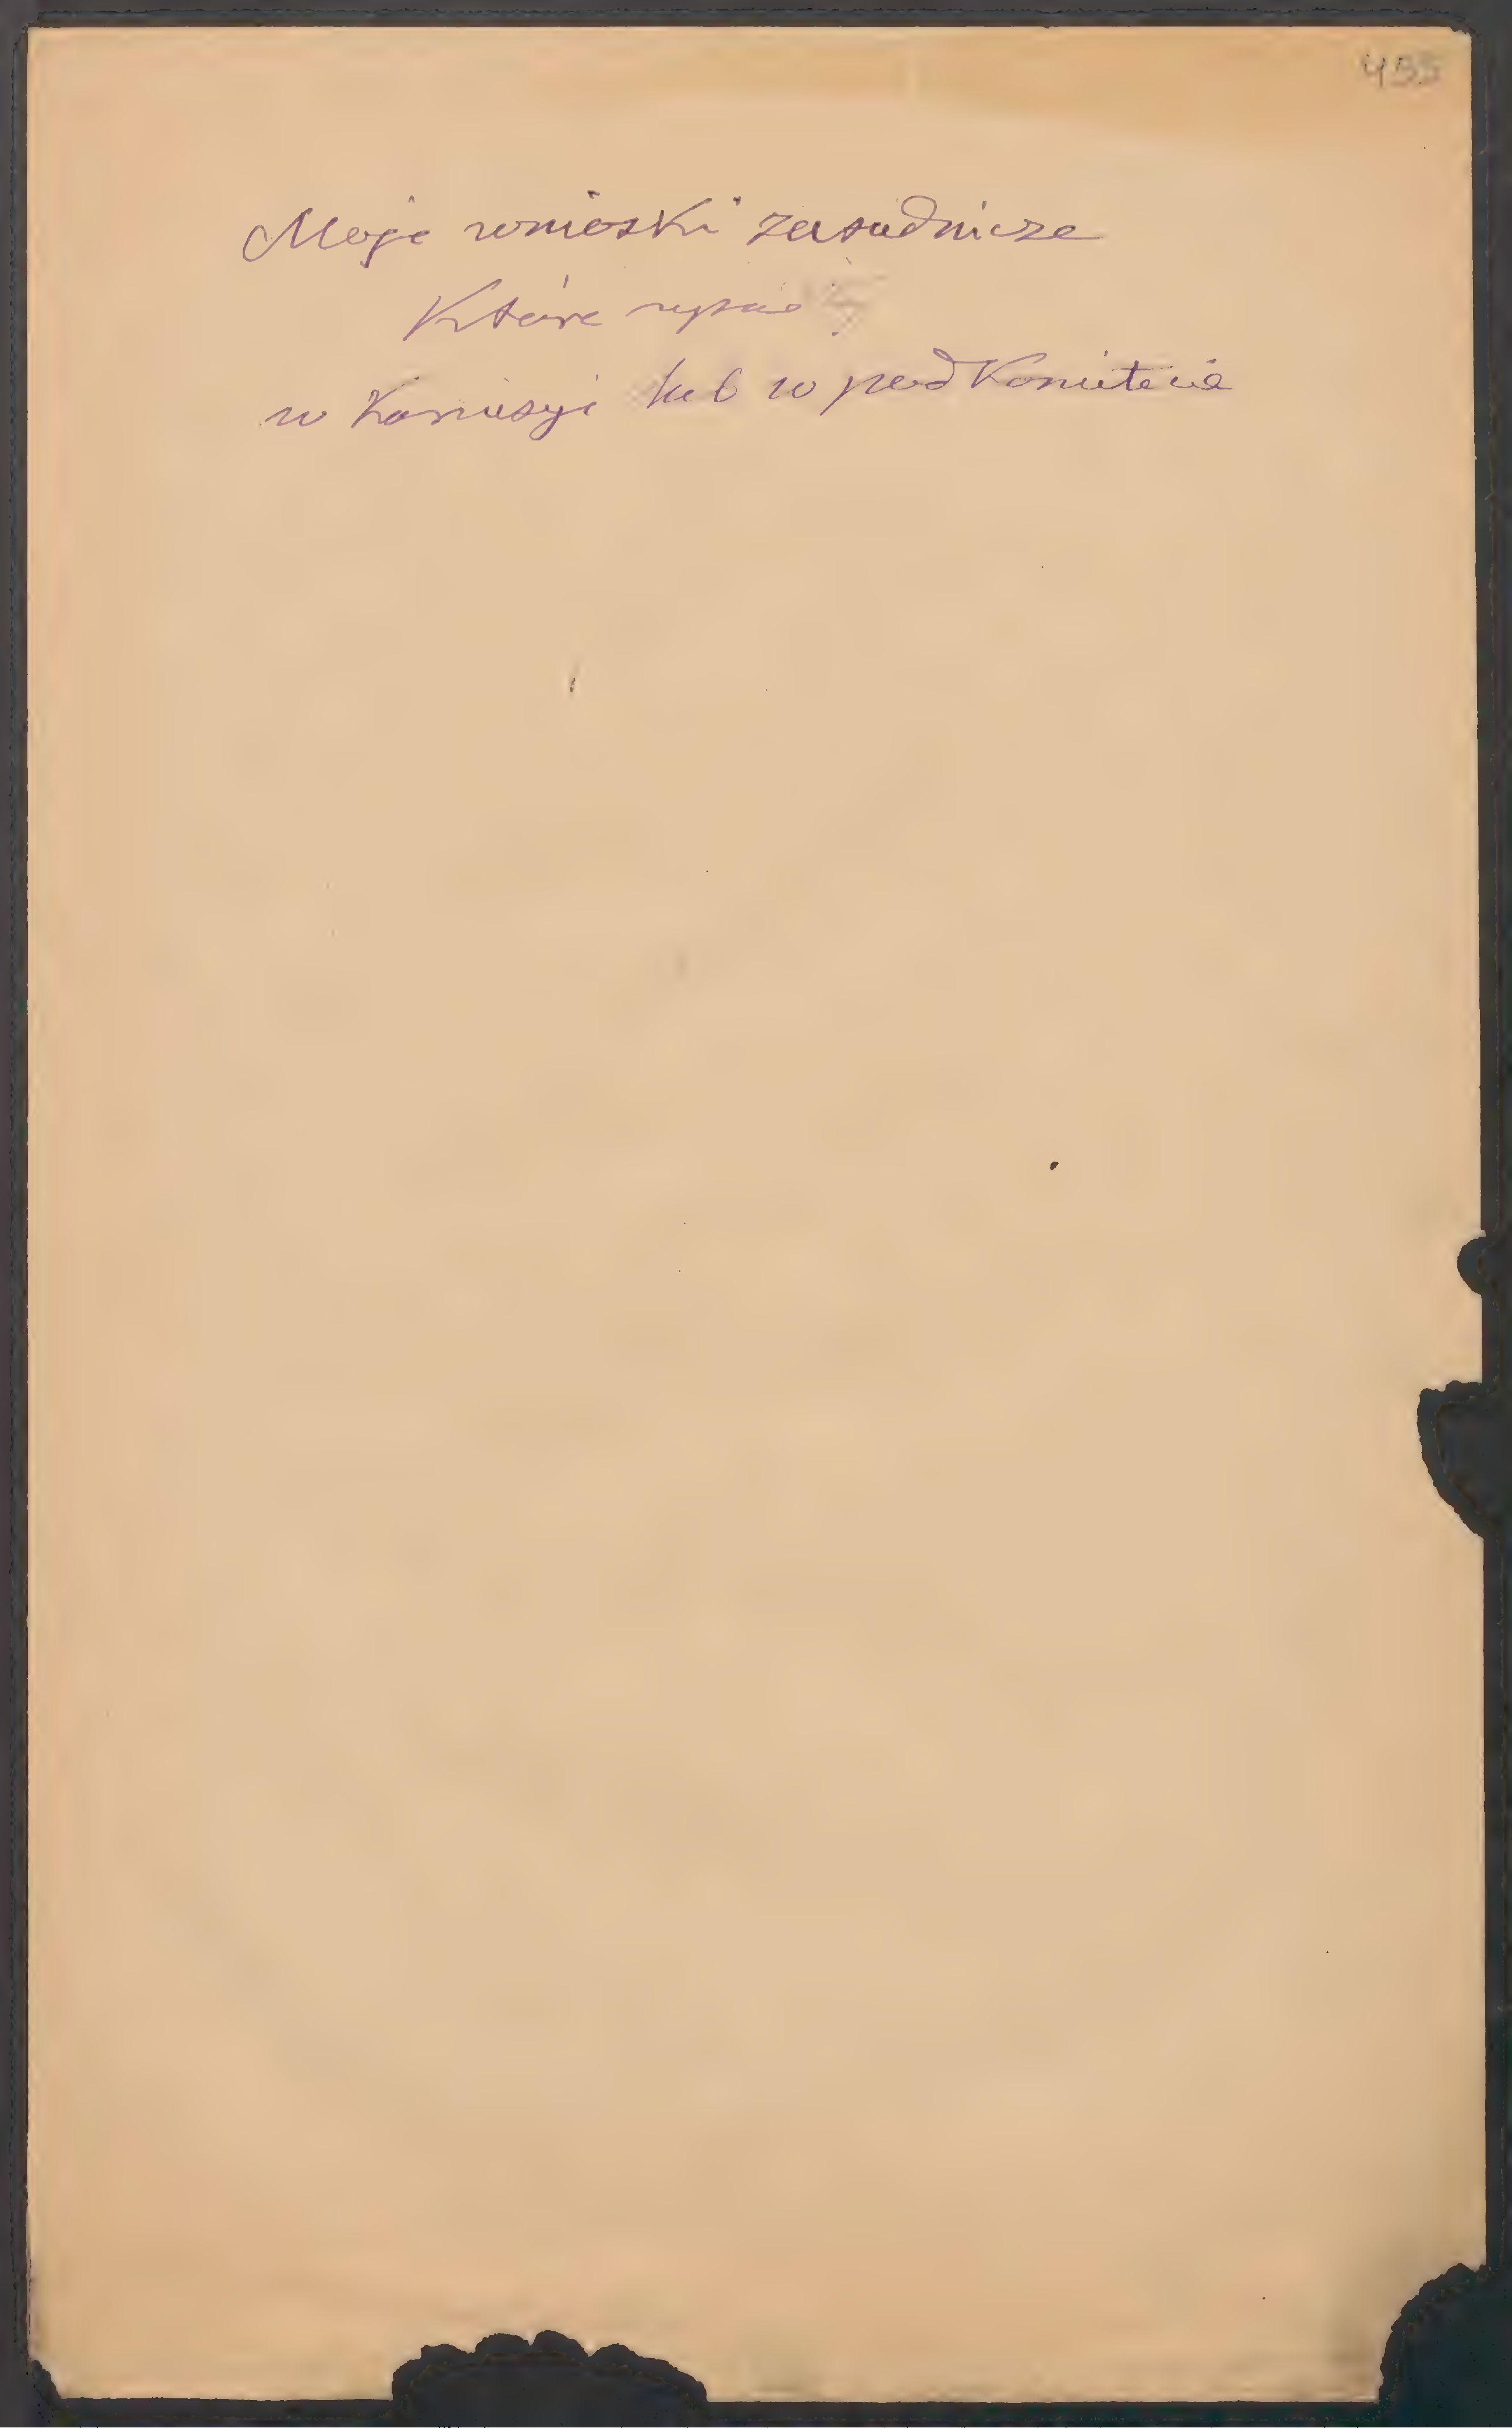 455
Moje wnioski zasadnicze
Które
w Komisyi lub w podkomitecie